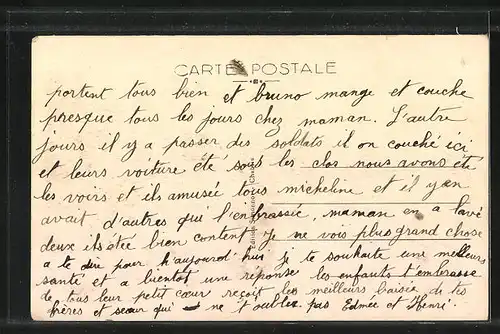 CARTE POSTALE
portent tous bien et bruno mange et couche
presque tous les jours chez maman. L'autre
jours il y a passer des soldats il on couché ici
et leurs voiture été sous les clos nous avons été
les voirs et ils amusée tous micheline et il y en
avait d'autres que l'enbrassée, maman en a lavé
deux ils étée bien content je ne vois plus grand chose
a te dire pour k'aujourd'hui je te souhaite une meilleurs
santé et a bientot une réponse les enfants t'embrasse
de tous leur petit cœur reçoit les meilleurs baisée de tes
frères et seœur qui ne t'oublez pas Edmée et Henri.